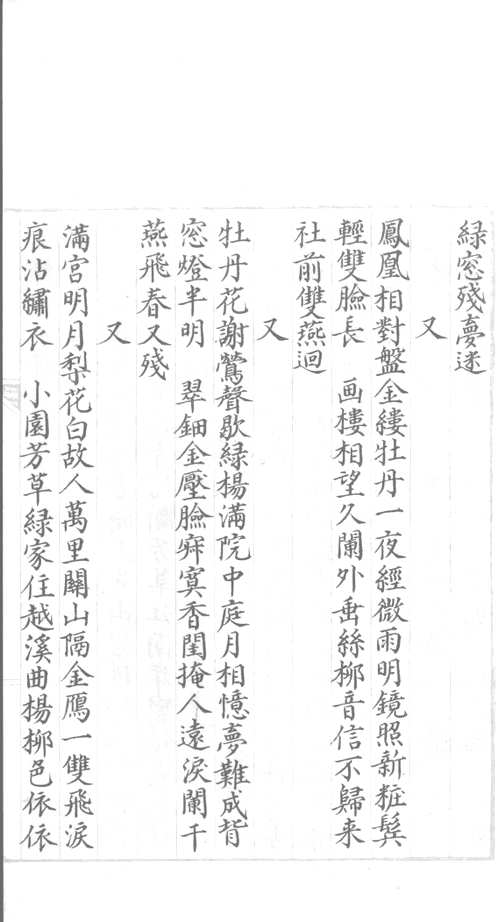 綠窓殘夢迷
又
鳳凰相對盤金縷牡丹一夜經微雨明鏡照新粧鬂
輕雙臉長　画樓相望久闌外垂絲柳音信不歸来
社前雙燕迴
又
牡丹花謝鶯聲歇綠楊滿院中庭月相憶夢難成背
窓燈半明　翠鈿金壓臉寂寞香閨掩人遠淚闌干
燕飛春又殘
又
滿宮明月梨花白故人萬里關山隔金鴈一雙飛淚
痕沾繡衣　小園芳草綠家住越溪曲楊柳色依依